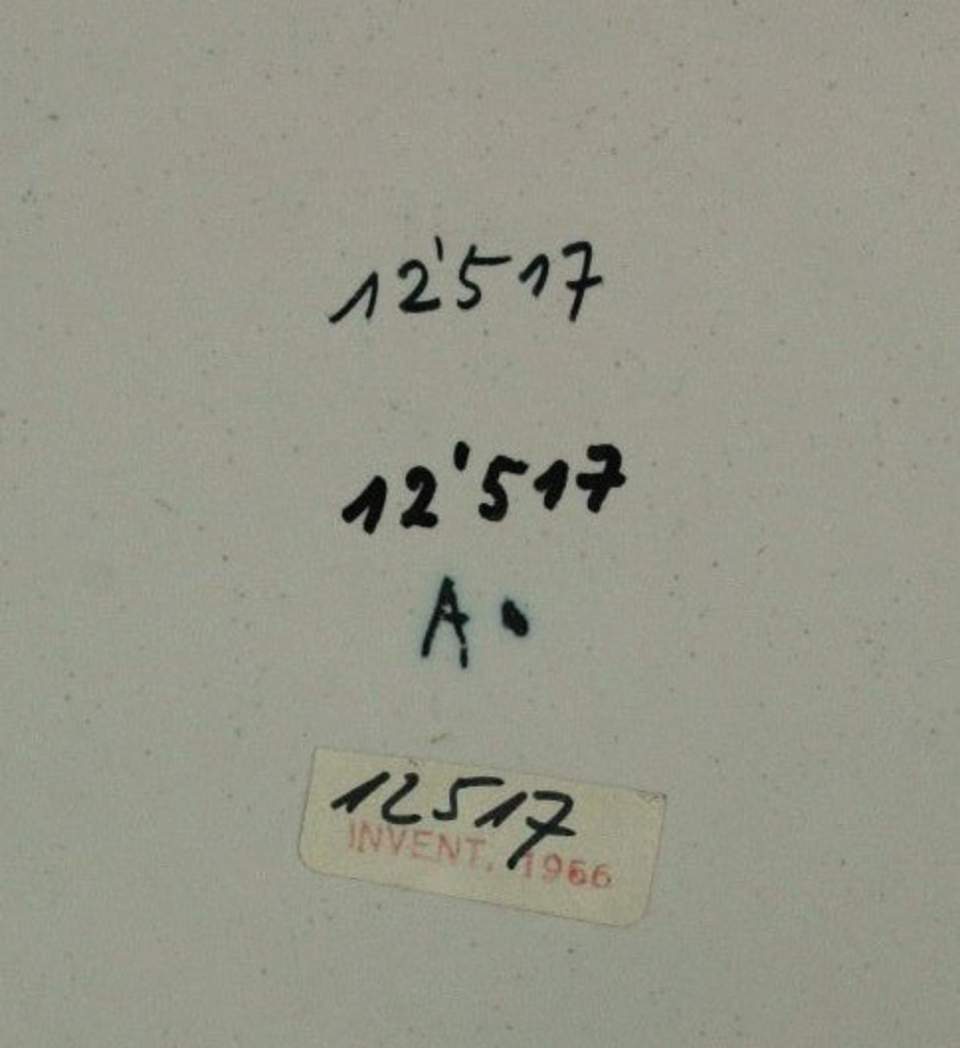 12'517
12'517
A •
12517
INVENT. 1966